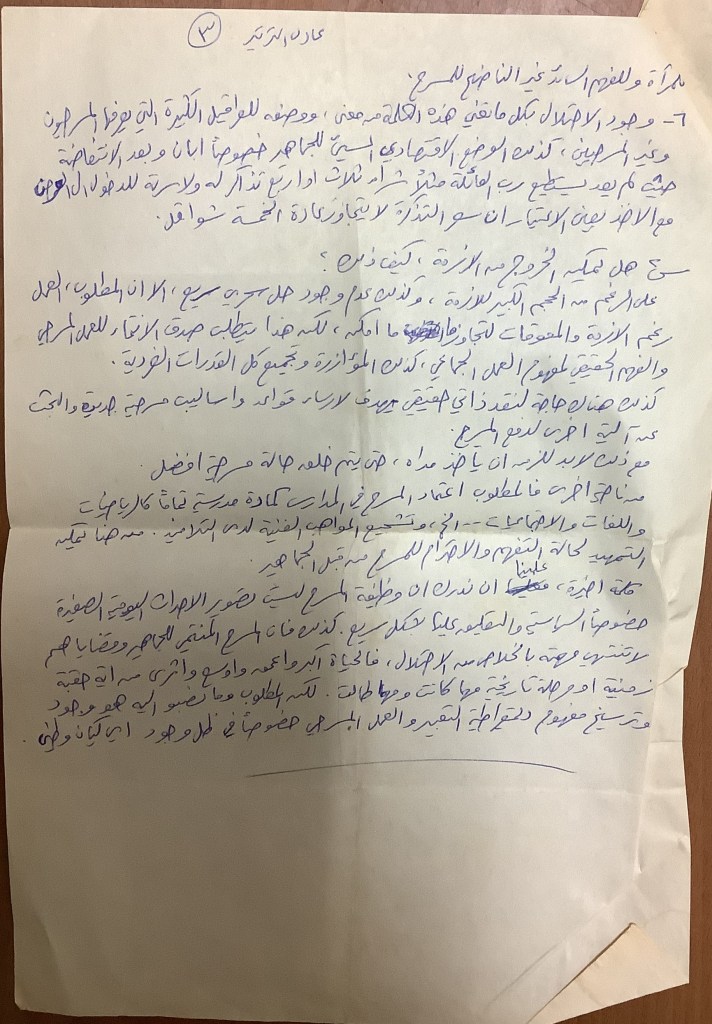 عادل الترتير ٣
للمرأة وللفهم السائد غير الناضج للمسرح.
٦- وجود الاحتلال بكل ما تعني هذه الكلمة من معنى، ووضعه للعراقيل الكثيرة التي يعرفها المسرحيون
وغير المسرحيين، كذلك الوضع الاقتصادي السيئ للجماهير خصوصاً ابان وبعد الانتفاضة
حيث لم يعد يستطيع رب العائلة مثلاً شراء ثلاث او اربع تذاكر له ولاسرته للدخول الى العرض
مع الاخذ بعين الاعتبار ان سعر التذكرة لا يتجاوز عادة الخمسة شواقل.
س٤ هل يمكن الخروج من الازمة، كيف ذلك؟
على الرغم من الحجم الكبير للازمة، وكذلك عدم وجود حل سحري سريع، الا ان المطلوب، العمل
رغم الازمة والمعوقات لتجاوزها ما امكن، لكن هذا يتطلب صدق الانتماء للعمل المسرحي
والفهم الحقيقي لمفهوم العمل الجماعي، كذلك المؤازرة وتجميع كل القدرات الفردية.
كذلك هناك حاجة لنقد ذاتي حقيقي يهدف لارساء قواعد واساليب مسرحية جديدة والبحث
عن آلية اخرى لدفع المسرح.
مع ذلك لابد للزمن ان ياخذ مداه، حتى يتم خلق حالة مسرحية افضل.
من ناحية اخرى فالمطلوب اعتماد المسرح في المدارس كمادة مدرسية تماماً كالرياضيات
واللغات والاجتماعيات -- الخ، وتشجيع المواهب الفنية لدى التلاميذ. من هنا يمكن
التمهيد لحالة التفهم والاحترام للمسرح من قبل الجماهير.
كلمة اخيرة، علينا ان ندرك ان وظيفة المسرح ليست تصوير الاحداث اليومية الصغيرة
خصوصاً السياسية والتعليق عليها بشكل سريع. كذلك فان المسرح المنتمي للجماهير وقضاياهم
لا تنتهي مهمته بالخلاص من الاحتلال، فالحياة اكبر واعمق واوسع واثرى من اية حقبة
زمنية او مرحلة تاريخية مهما كانت ومهما طالت. لكن المطلوب وما نصبو اليه هو وجود
وترسيخ مفهوم ديمقراطية التعبير والعمل المسرحي خصوصاً في ظل وجود اي كيان وطني.